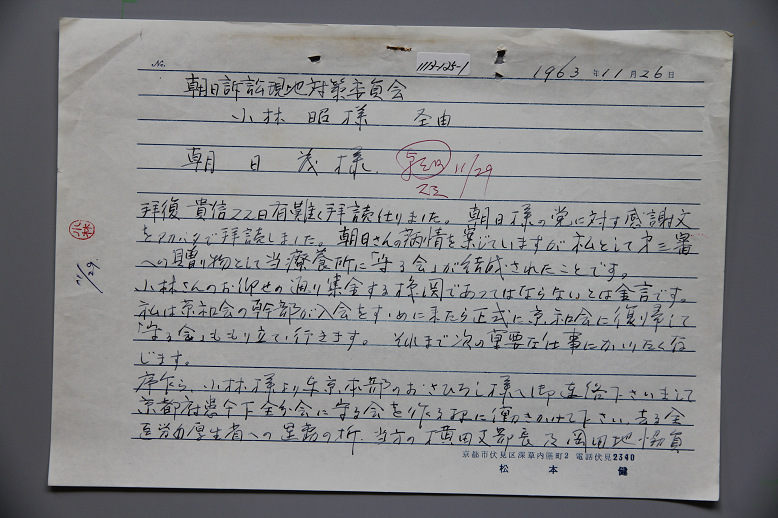 No.
1113-125-1
1963年11月26日
朝日訴訟現地対策委員会
小林昭様 至由
朝日茂様
11/29
拝復 貴信22日有難く拝読仕りました。朝日様の党に対す感謝文
をアカハタで拝読しました。朝日さんの病情を案じていますが私として才三署
への贈り物として当療養所に「守る会」が結成されたことです。
小林さんのお仰せの通り集金する機関であってはならないとは金言です。
私は京和会の幹部が入会をすゝめに来たら正式に京和会に復帰して
「守る会」ももり立て行きます。それまで次の重要な仕事にかゝりたく存
じます。
序乍ら、小林様より東京本部のおさひろし様へ御連絡下さいまして
京都府患全下全分会に守る会を作る様に働きかけて下さい。去る全
医労の厚生省への の折、当方の横田支部長及岡田地協負
京都市伏見区深草内膳町2 電話伏見2340
松本 健
小林
11/29.